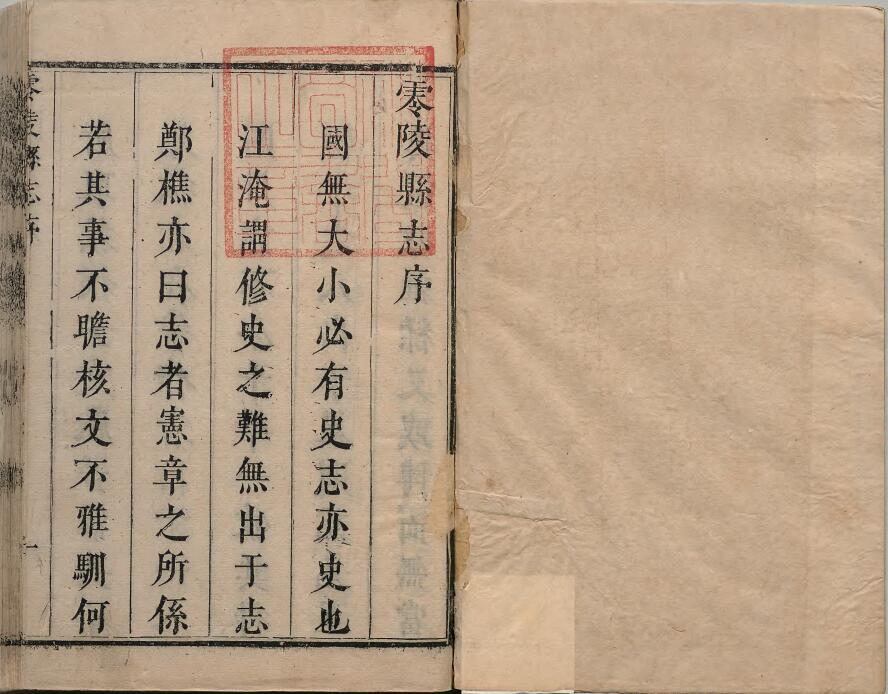 零陵縣志序
國無大小必有史志亦史也
江淹謂修史之難無出于志
鄭樵亦曰志者憲章之所係
若其事不贍核文不雅馴何
零陵縣志序
一